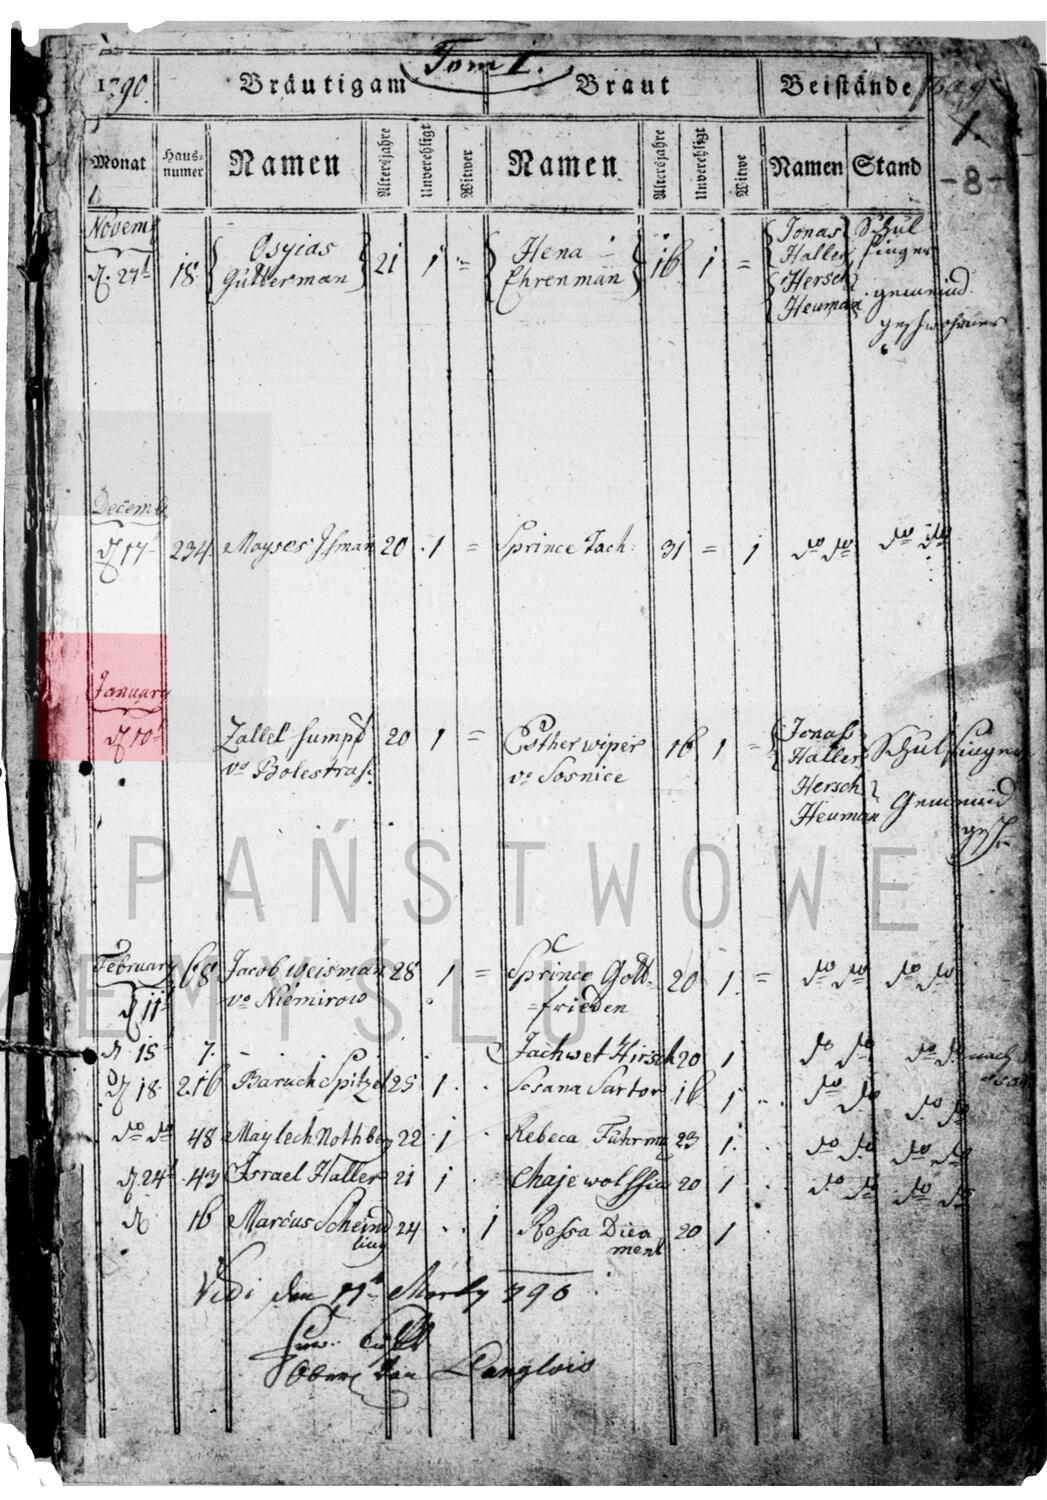 Tom I.
1790. Bräutigam Braut Beistände pag
1.
Monat Hausnumer Namen Altersjahre Unverehligt Witwer Namen Altersjahre Unverehligt Witwe Namen Stand
-8-
Novem
d. 27t 18 Osyias Gütterman 21 1 = Hena Ehrenman 16 1 = Jonas Haller Schul singer
Hersch Heuman gemeind geschworner
Decemb
d 17t 234 Mayses Isman 20 1 = Sprince Tach 31 = 1 do do do do
January
d 10t Zallel Sumpf 20 1 = Esther wiper 16 1 = Jonas Haller Schul singer
vo Bolestras. vo Sosnice Hersch Heuman Gemeind gesch
PAŃSTWOWE
February 68 Jacob Weisman 28 1 = Sprince Gott- 20 1 = do do do do
d 11t vo Niemirow =frieden
ZEMYŚLU
d 15t 7. Jachwet Hirsch 20 1 do do do do
d 18 216 Baruch Spitzel 25 1 Sosana Sartor 16 1 do do do do
do do 48 Maylech Nothbeg 22 1 Rebeca Fuhrma 23 1 do do do do
d 24t 43 Israel Haller 21 1 Chaje wolf 20 1 do do do do
d 16 Marcus Scheind 24 1 Rossa Dia 20 1
ling ment
Vidi den 11t Marty 790
Langlois